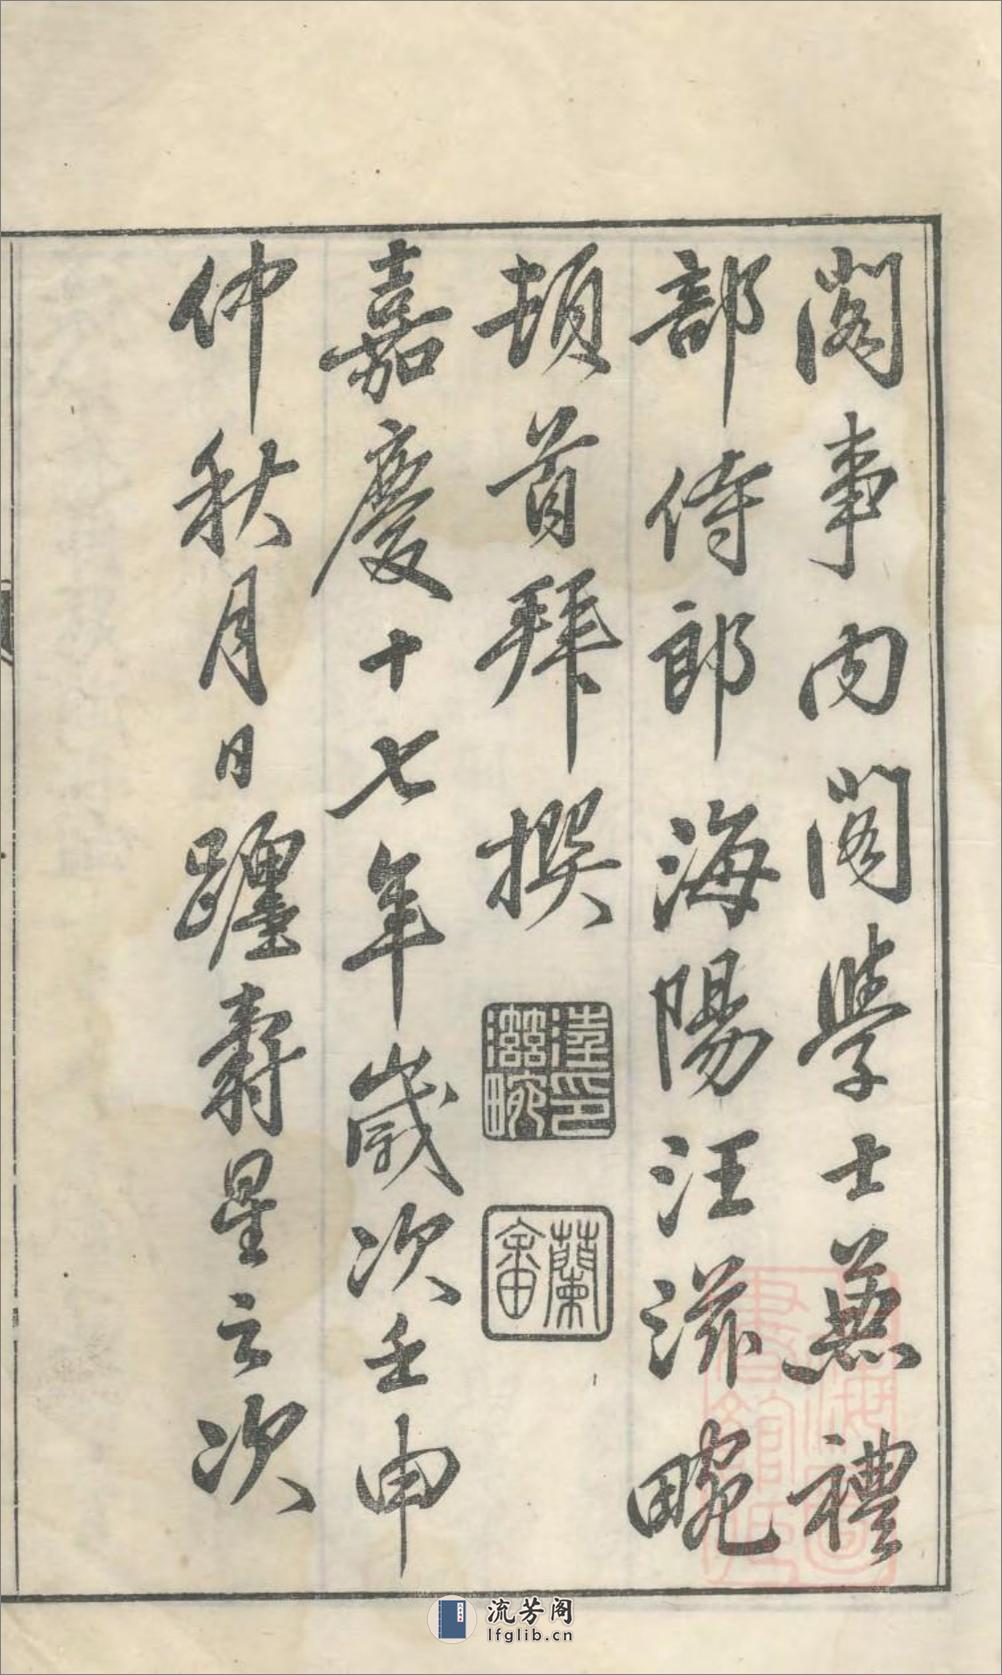 閣事內閣學士兼禮
部侍郎海陽汪滋畹
頓首拜撰
汪印滋畹
蘭畬
嘉慶十七年歲次壬申
仲秋月日躔壽星之次
流芳阁
lfglib.cn